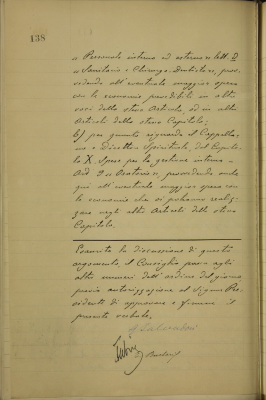 138
" Personale interno ed esterno
" Sanitario e Chirurgo-Dentista", prov-
vedendo all'eventuale maggior spesa
con le economie prevedibili in altre
voci dello stesso Articolo od in altri
Articoli dello stesso Capitolo;
b) per quanto riguarda il Cappella-
no e Direttore Spirituale, dal Capito-
lo X. Spese per la gestione interna -
Art. Oratorio", provvedendo anche
qui all'eventuale maggior spesa con
le economie che si potranno realiz-
zare negli altri Articoli dello stesso
Capitolo.
Esaurita la discussione di questo
argomento, il Consiglio passa agli
altri numeri dell'ordine del giorno,
previa autorizzazione al Signor Pre-
sidente di approvare e firmare il
presente verbale.